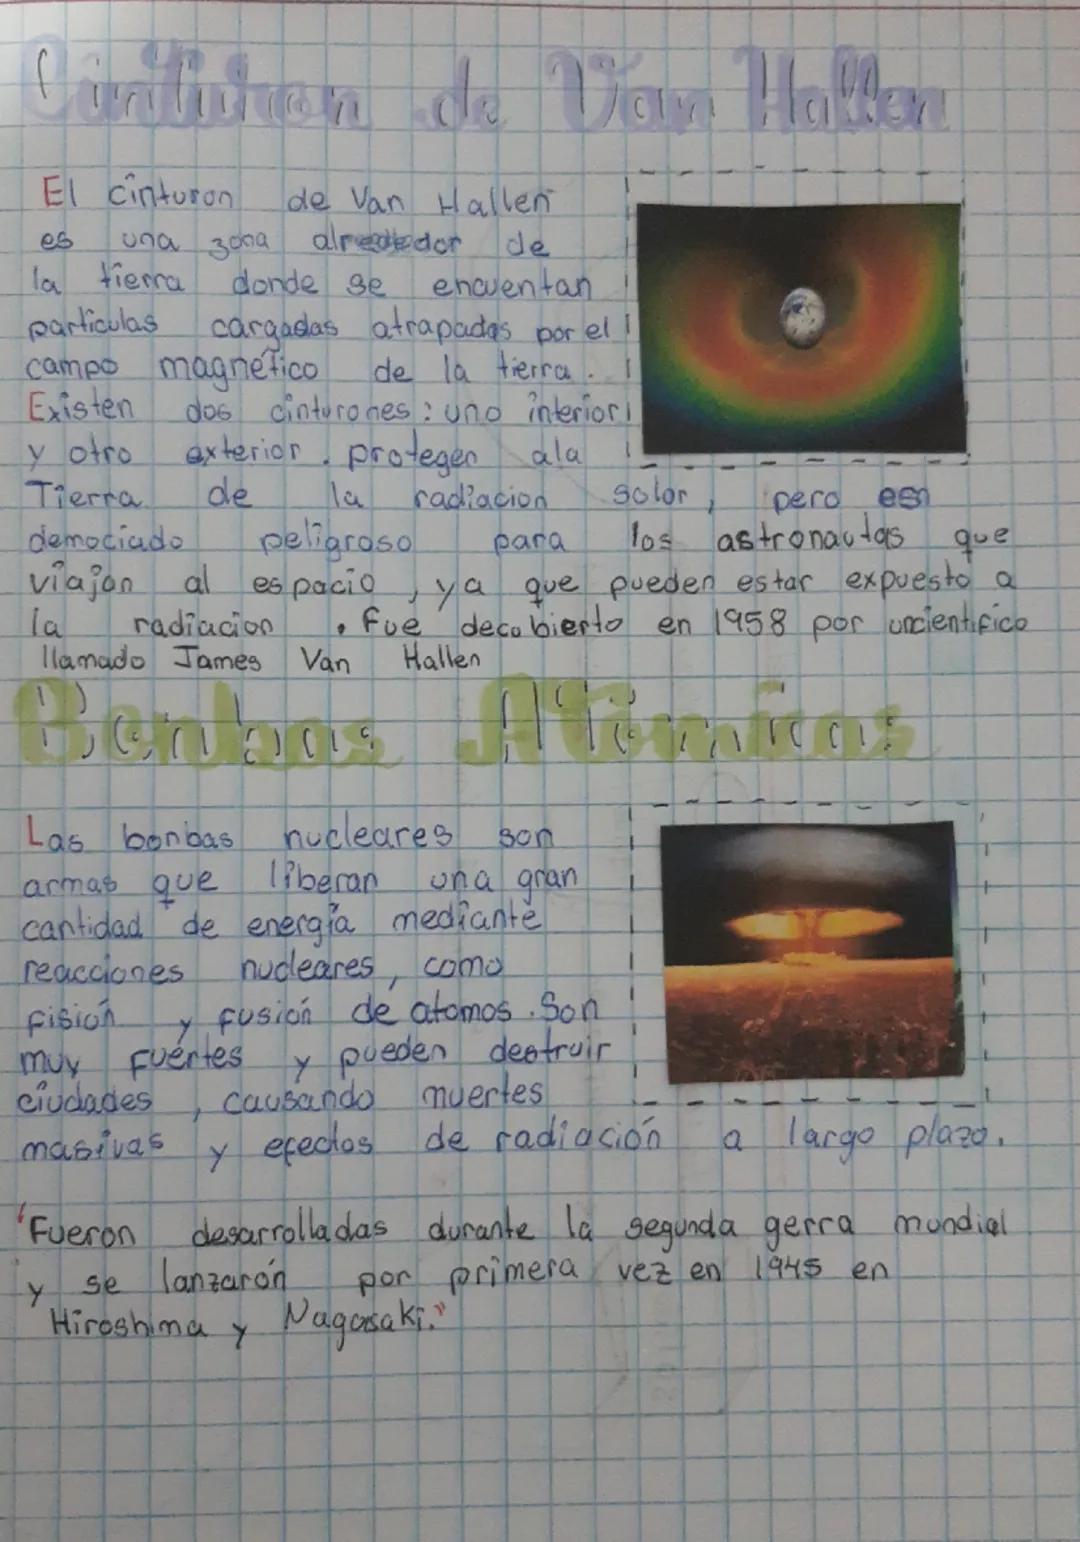 Cinturon de Van Hallen
El cinturon de Van Hallen
es una zona alrededor de
la tierra donde se encuentan
particulas cargadas atrapadas por el
campo magnético de la tierra.
Existen dos cinturones: uno interior
y otro exterior. protegen ala
Tierra de la radiacion solar, pero esn
demociado peligroso para los astronautas que
viajan al espacio, ya que pueden estar expuesto a
la radiacion. fue decobierto en 1958 por uncientifico
llamado James Van Hallen
Bonbas Atómicas
Las bonbas nucleares son
armas que liberan una gran
cantidad de energía mediante
reacciones nucleares, como
fisión y fusión de atomos. Son
muy fuertes y pueden destruir
ciudades, causando muertes
masivas y efectos de radiación a largo plazo.
"Fueron desarrolladas durante la segunda gerra mundial
y se lanzarón por primera vez en 1945 en
Hiroshima y Nagasaki."